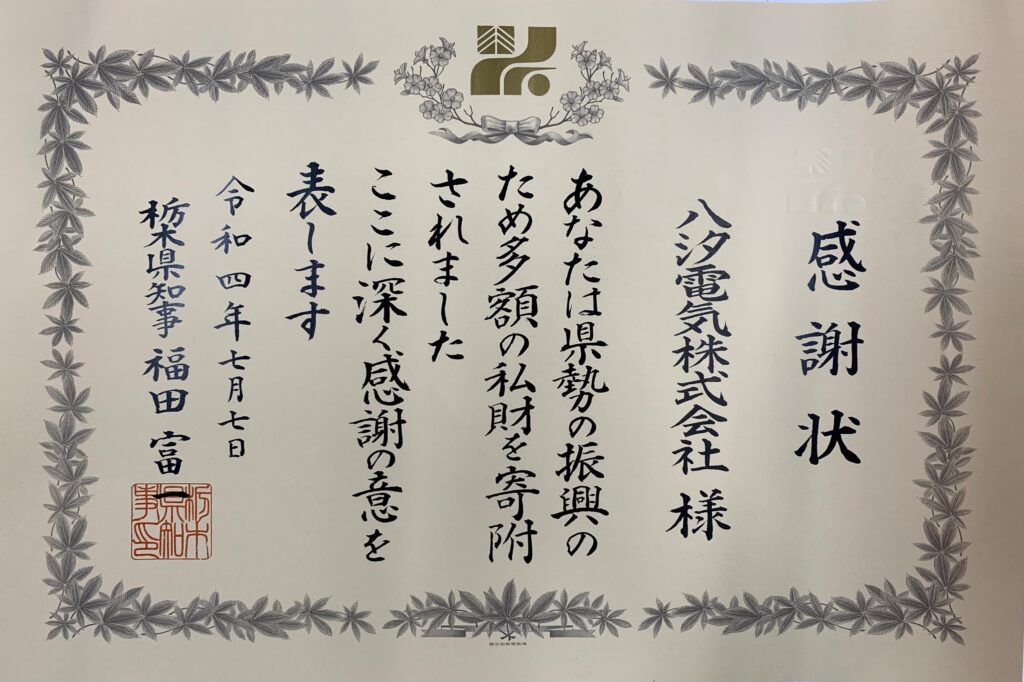 感謝状
八汐電気株式会社 様
あなたは県勢の振興の
ため多額の私財を寄附
されました
ここに深く感謝の意を
表します
令和四年七月七日
栃木県知事 福田富一
栃木県知事印